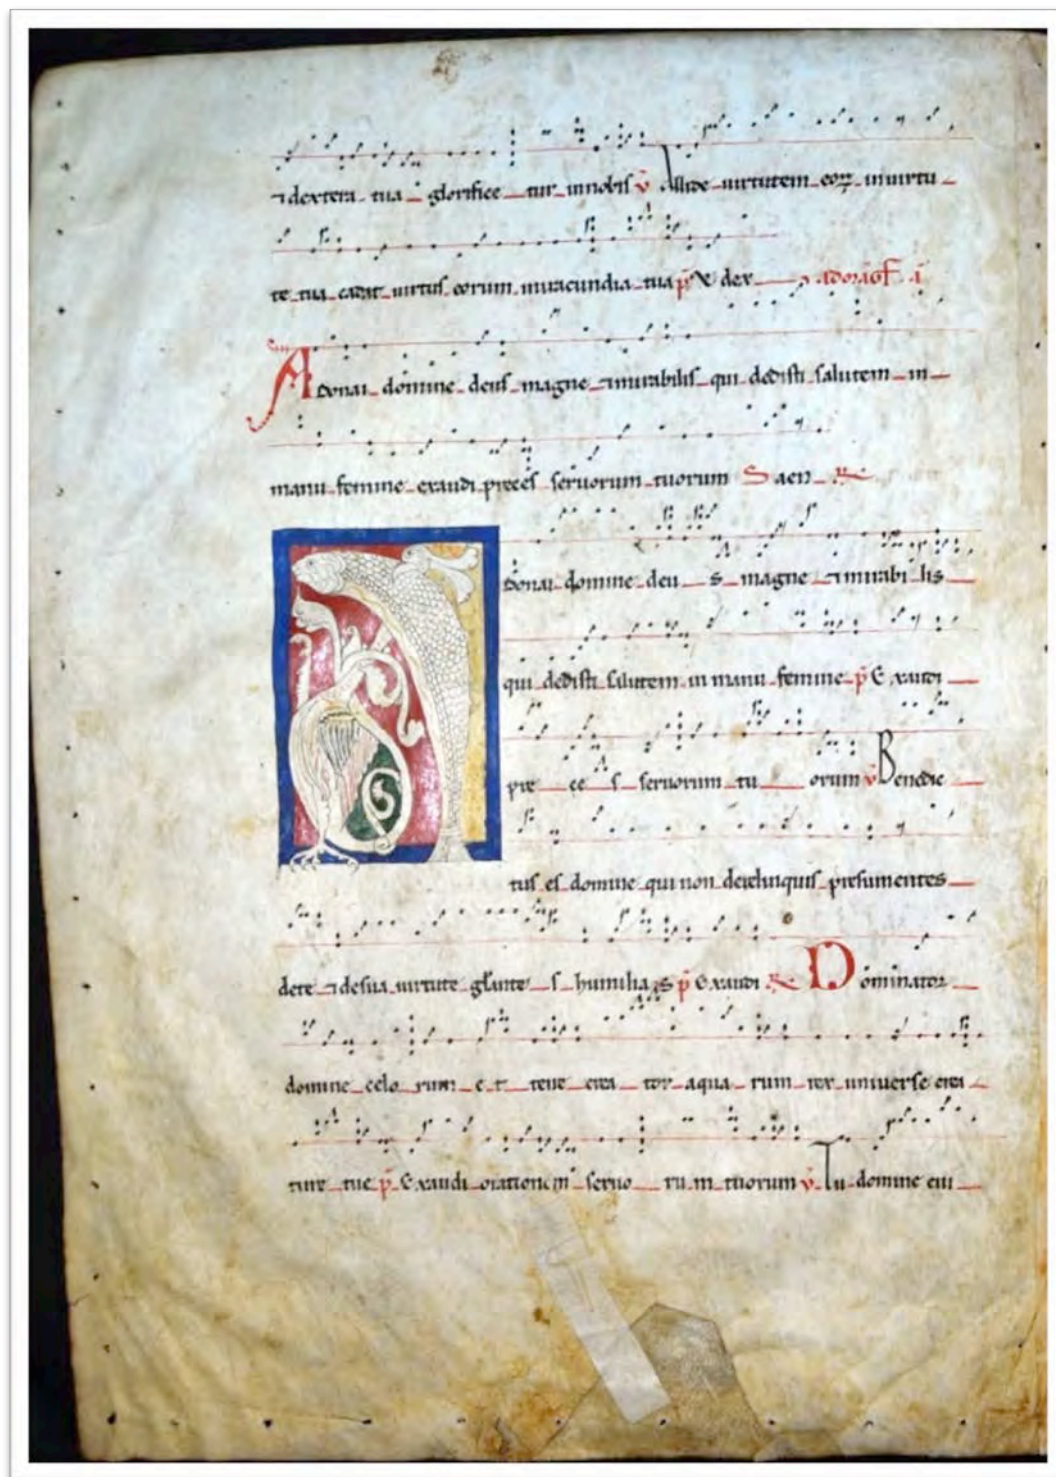 ⁊ dextera tua glorifice tur in nobis v̄ Allide uirtutem eoꝝ in uirtu
te tua cadat uirtus eorum in iracundia tua p̄ dex
Adonai domine deus magne ⁊ mirabilis qui dedisti salutem in
manu femine exaudi preces seruorum tuorum S aen
donai domine deu s magne ⁊ mirabi lis
qui dedisti salutem in manu femine p̄ Exaudi
pre ce s seruorum tu orum v̄ Benedic
tus es domine qui non derelinquis presumentes
de te ⁊ de sua uirtute humilias p̄ Exaudi Dominator
domine celo rum e t terre crea tor aqua rum rex uniuerse crea
ture tue p̄ Exaudi orationem seruo ru m tuorum v̄ Tu domine cui